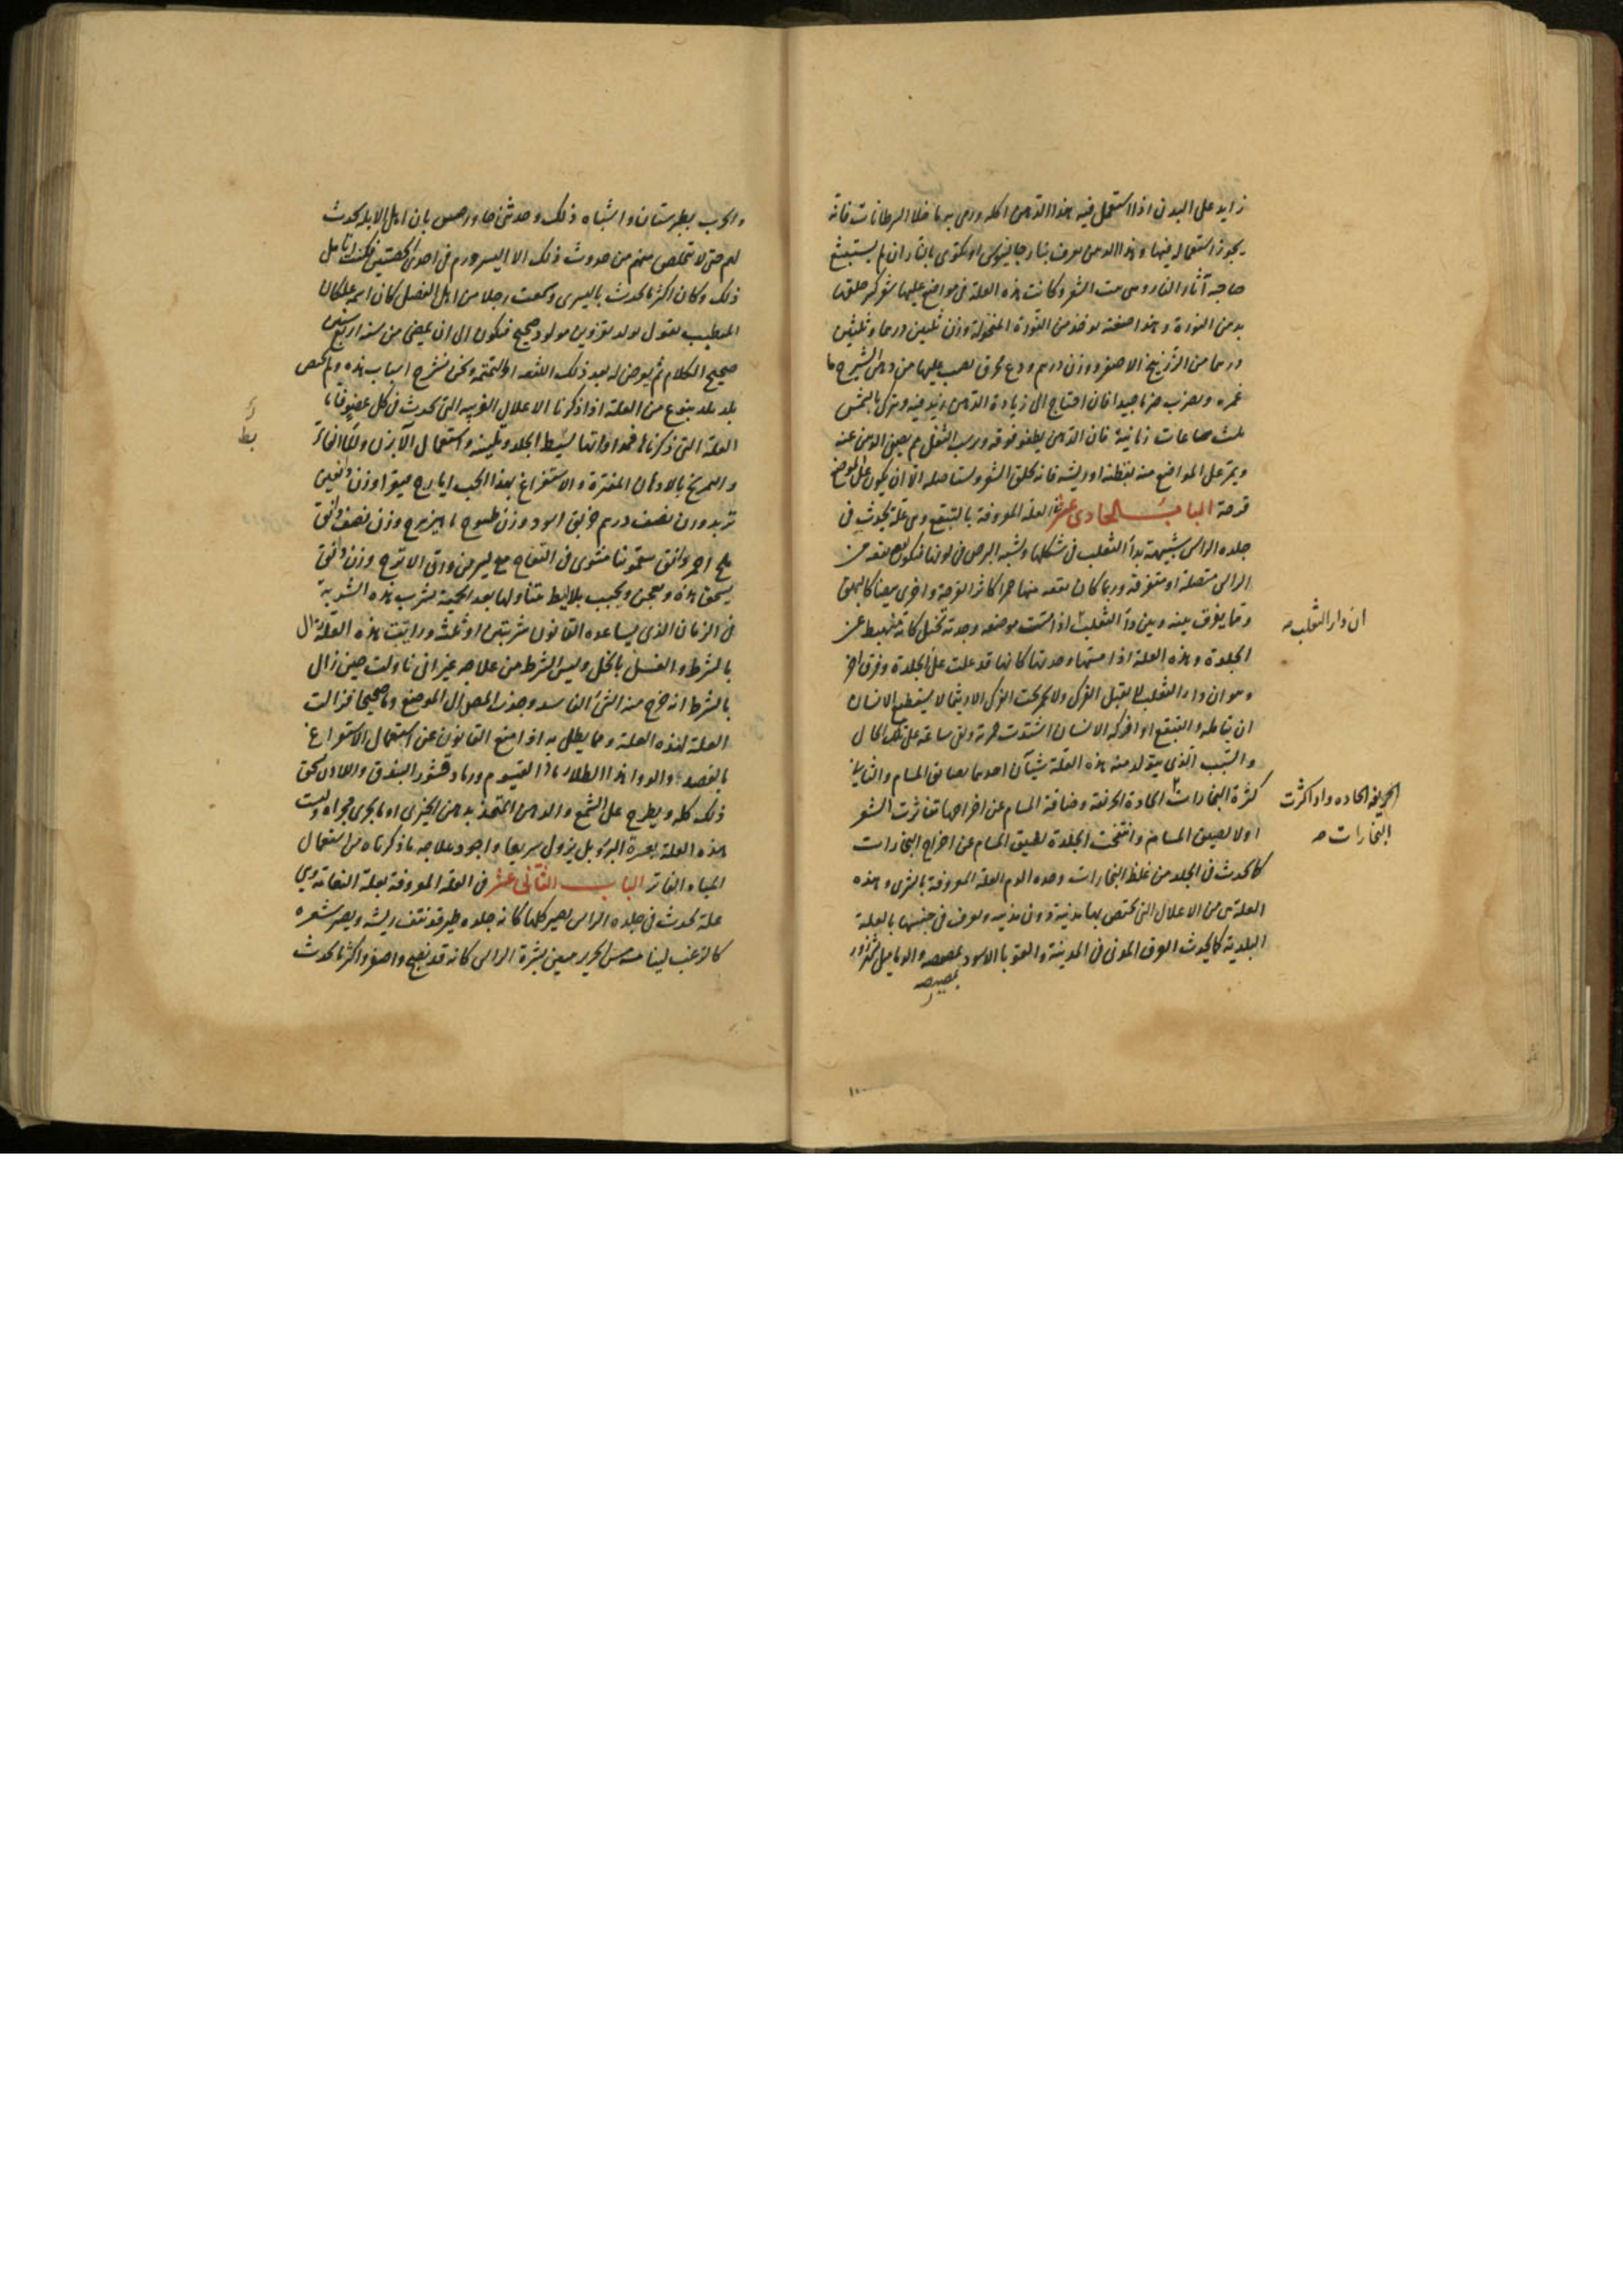 زايد على البدن اذا استعمل فيه هذا الدهن اكله ورمى به ما خلا السرطانات فانه
يجوز استعماله فيها وهذا الدهن يعرف بنار جالينوس او المكتوى بالنار ان لم يستبشع
صاحبه آثار النار وهى منبت الشعر وكانت هذه العلة فى مواضع عليها شعر كثير حلقها
بدهن النورة وهذا صفته يوخذ من النورة المنخولة وزن ثلثين درهما وثلثين
درهما من الزرنيخ الاصفر ووزن درهم ودع محرق يصب عليها من دهن الشيرج ما
غمره ويضرب ضربا جيدا فان احتاج الى زيادة الدهن زيد فيه ويترك بالشمس
ثلث ساعات زمانية فان الدهن يطفو فوقه ويرسب الثفل ثم يصفى الدهن عنه
ويمر على المواضع منه بقطنة او ريشة فانه يحلق الشعر ويستاصله الا ان يكون على الموضع
قرحة الباب الحادى عشر فى العلة المعروفة بالتبقع وهى علة تحدث فى
جلدة الراس شبيهة بدأ الثعلب فى شكلها ويشبه البرص فى لونها فيكون بقعه من
الراس متصلة او متفرقة وربما كان بقعه منها حمرا كاثر القرحة واخرى بيضا كالبهق
ومما يفرق بينه وبين دأ الثعلب اذا مست موضعه وجدته تخيل كانه منهبط عن
ان دار الثعلب صـ
الجلدة وهذه العلة اذا مستها وجدتها كانها قد علت على الجلدة وفرق اخر
وهو ان داء الثعلب لا يقبل الفرك ولا يحمر تحت الفرك الا ريثما لا يستطيع الانسان
ان يتامله والتبقع اذا فركه الانسان اشتدت حمرته وبقى ساعة على تلك الحال
والسبب الذى يتولد منه هذه العلة شيآن احدهما بضايق المسام والثانى
كثرة البخارات الحادة الحرنفة وضاقة المسام عن اخراجها تناثرت الشعر
الحريفة الحاده واذا كثرت
البخارات صـ
اولا لضيق المسام وانتفخت الجلدة لضيق المسام عن اخراج البخارات
كما يحدث فى الجلد من غلظ البخارات وحده الدم العلة المعروفة بالشرى وهذه
العلة من من الاعلال التى يختص بها مدينة دون مدينه ويعرف فى جنسها بالعلة
البلدية كما يحدث العرق المدنى فى المدينة والقوبا الاسود بمصيصه والدماميل
بمصيصه
والجرب بطبرستان واشباه ذلك وحدثنى بان اهل الابله يحدث
لهم حتى لا يتخلص منهم من حدوث ذلك الا اليسير ورم فى احدى الخصيتين فكنت اتامل
ذلك وكان اكثر ما يحدث باليسرى وسمعت رجلا من اهل الفضل كان اسمه علكان
المتطبب يقول يولد بقزوين مولود صحيح فيكون الى ان يمضى من سنه اربع سنين
صحيح الكلام ثم يعرض له بعد ذلك اللثغه او التمتمه ونحن نشرح اسباب هذه ولم اختص
بلد بلد بنوع من العلة اذا ذكرنا الاعلال الغريبه التى تحدث فى كل عضو فاما
العلة التى ذكرناها فمداواتها تبسيط الجلد وتليينه واستعمال الآبزن والماء الفاتر
والتمريخ بالادهان المفترة والاستفراغ بهذا الحب ايارج فيقرا وزن دانقين
تربد وزن نصف درهم خربق اسود وزن طسوج ماهيزهرج وزن نصف دانق
ملح احمر دانق سقمونيا مشوى فى التفاح مع يسير من ورق الاترج وزن دانق
يسحق هذه ويعجن ويحبب بلا ليط يتناولها بعد الحمية يشرب هذه الشربة
فى الزمان الذى يساعده القانون شربتين او ثلثه ورايت هذه العلة تزال
بالشرط والغسل بالخل وليس الشرط من علاجه غير انى تاولت حين زال
بالشرط انه خرج منه الشئ الفاسد وجذب المصل الى الموضع دما صحيحا فزالت
العلة لهذه العلة ومما يطلى به اذا منع القانون عن استعمال الاستفراغ
بالفصد والدوا هذا الطلاء رماد القيسوم ورماد قشور البندق واللادن يسحق
ذلك كله ويطرح على الشمع والدهن المتخذ بدهن الخيرى او ما يجرى مجراه وليست
هذه العلة بعسرة البرؤ بل يزول سريعا واجود علاجه ما ذكرناه من استعمال
المياه الفاترة الباب الثانى عشر فى العلة المعروفة بعلة النعامة وهى
علة تحدث فى جلدة الراس يصير كلها كانه جلده طير قد نتف ريشه ويصير شعره
كالزغب لينا مسه مس الحرير بشرة الراس كانه قد نضج واصفر واكثر ما يحدث